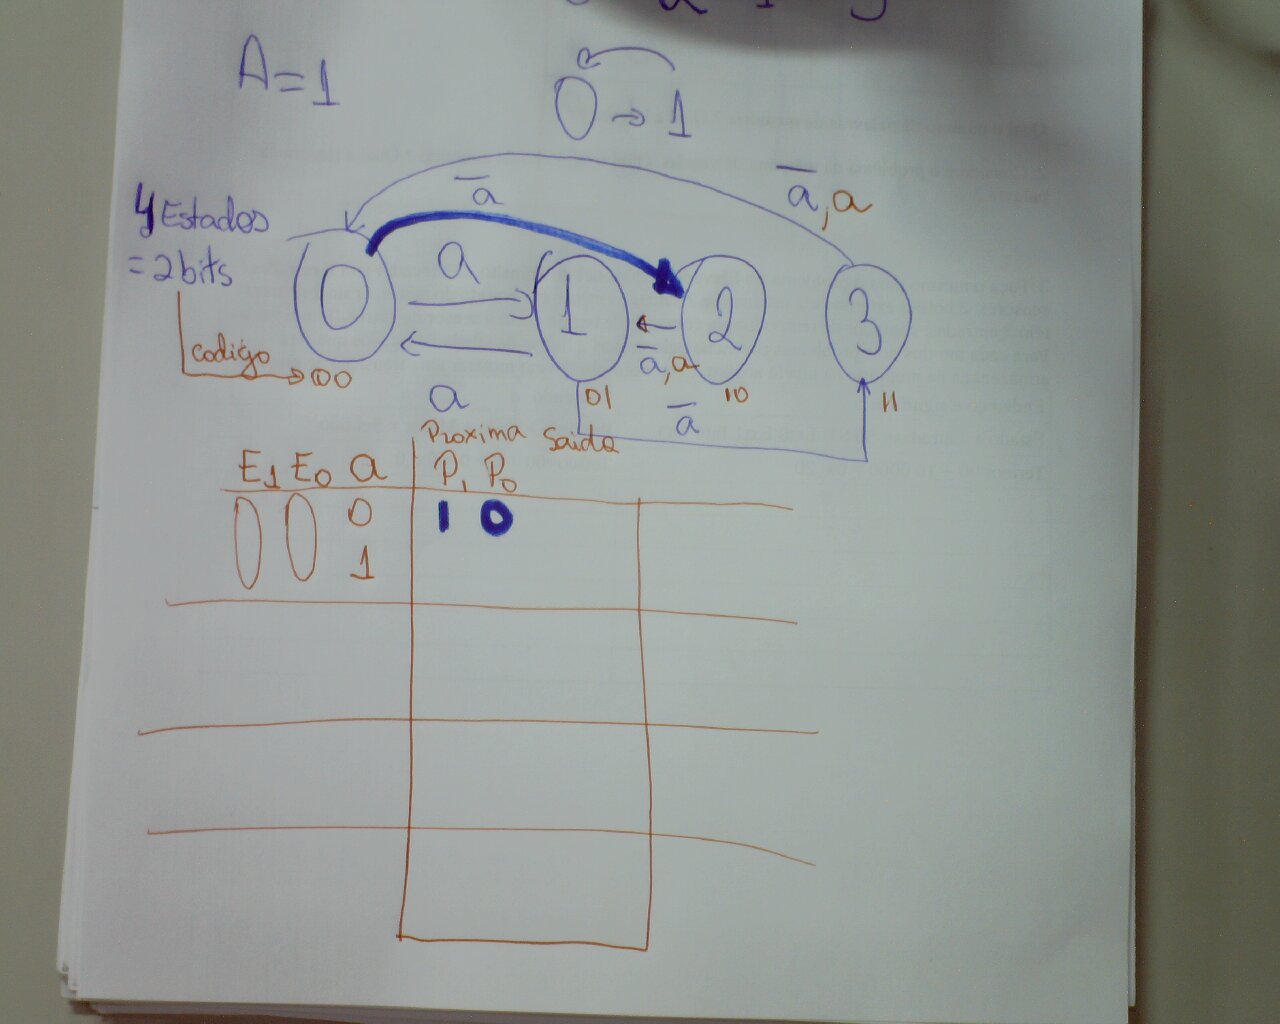 A=1
0 → 1
4 Estados
= 2 bits
codigo
00
ā
a
a
ā,a
ā,a
ā
0
1
2
3
01
10
11
Proxima Saida
E1 E0 a P1 P0
0 0 0 1 0
1